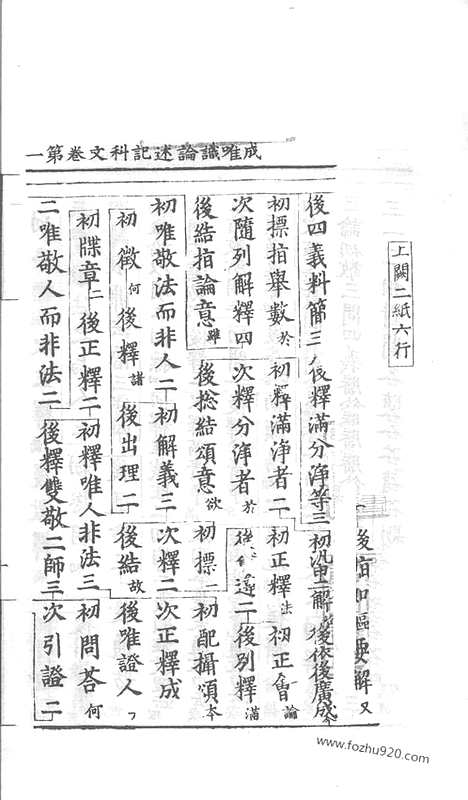 成唯識論述記科文卷第一
上闕二紙六行
解 又
後四義料簡三 後釋滿分淨等三 後依後廣成
初標指舉數 於 初釋滿淨者二 初正釋 法 初正會 論
次隨列解釋四 次釋分淨者 於 二 後別釋 滿
後結指論意 雖 後捴結頌意 欲 初標 初配攝頌 本
初唯敬法而非人二 初解義三 次釋二 次正釋成
初徵 何 後釋 諸 後出理二 後結 故 後唯證人
初牒章二 後正釋二 初釋唯人非法三 初問荅 何
二唯敬人而非法二 後釋雙敬二師三 次引證二
www.fozhu920.com